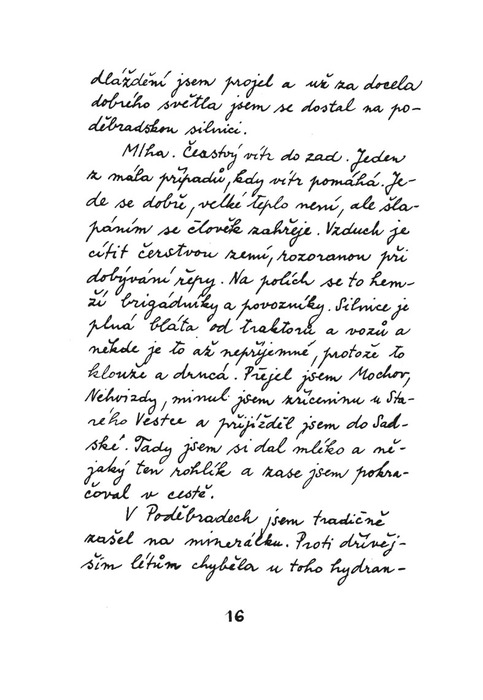 dláždění jsem projel a už za docela
dobrého světla jsem se dostal na po-
děbradskou silnici.
Mlha. Čerstvý vítr do zad. Jeden
z mála případů, kdy vítr pomáhá. Je-
de se dobře, velké teplo není, ale šla-
páním se člověk zahřeje. Vzduch je
cítit čerstvou zemí, rozoranou při
dobývání řepy. Na polích se to hem-
ží brigádníky a povozníky. Silnice je
plná bláta od traktorů a vozů a
někde je to až nepříjemné, protože to
klouže a drncá. Přejel jsem Mochov,
Nehvizdy, minul jsem zříceninu u Sta-
rého Vestce a přijížděl jsem do Sad-
ské. Tady jsem si dal mléko a ně-
jaký ten rohlík a zase jsem pokra-
čoval v cestě.
V Poděbradech jsem tradičně
zašel na minerálku. Proti dřívěj-
ším létům chyběla u toho hydran-
16